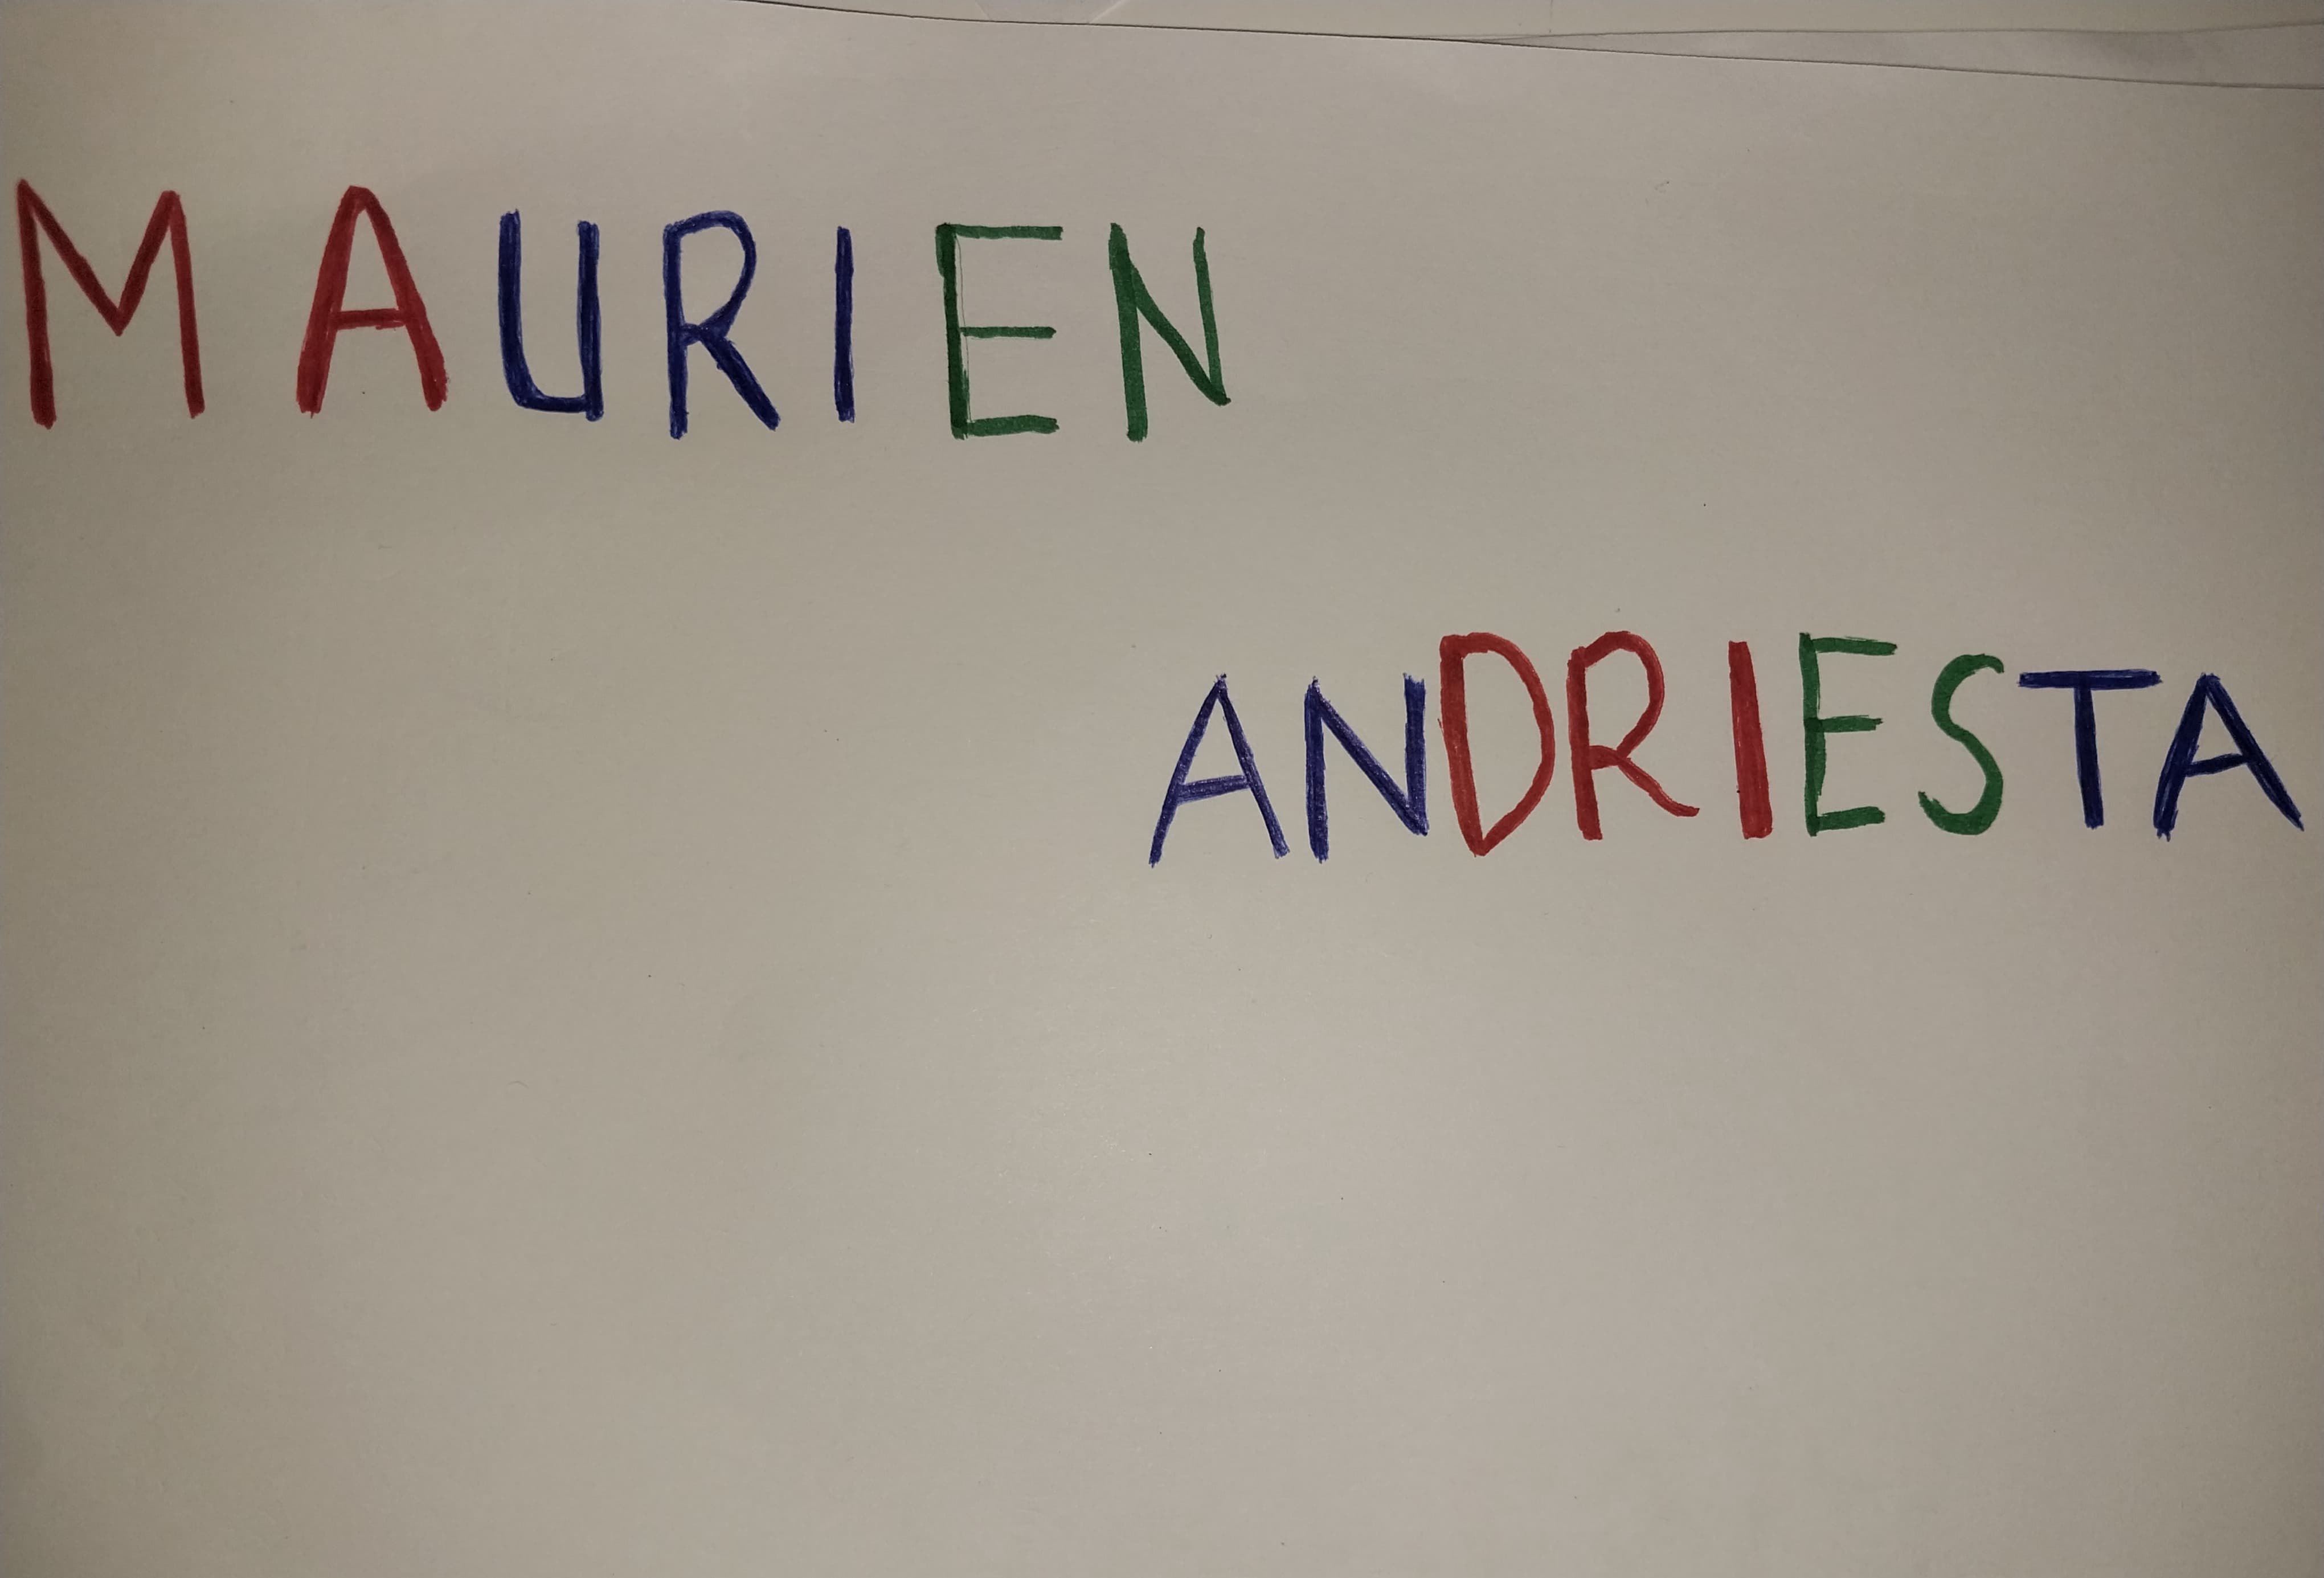 MAURIEN
ANDRIESTA